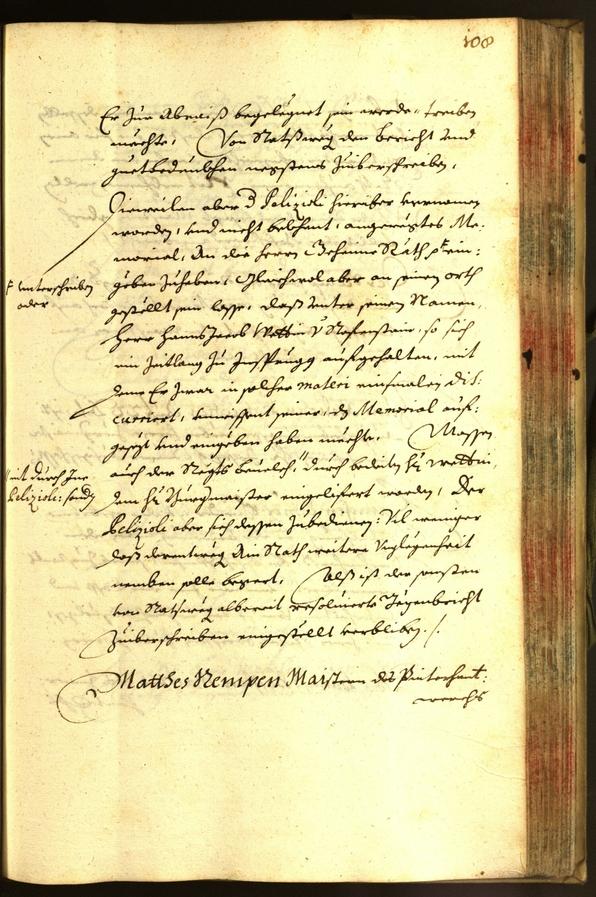 108
Er zur Abendß begelegnet sein werde, treiben
mechte, Von Ratßweg den bericht und
guetbedunkhen negstens zuiberschreiben,
Dieweilen aber d Pelizioli hieriber vernomen
worden, und nicht bekhent, angeregtes Me:
morial, An die Herrn Geheime Räth ein:
geben zuhaben, Gleichwol aber an seinen orth
gestellt sein lasse, daß unter seinen Namen,
Herr Hanns Jacob Wettin v Stefenstain, so sich
ein Zeitlang zu Insprugg aufgehalten, mit
deme Er zwar in solcher materi einsmalen dis:
curriert, unwissent seiner, ds Memorial auf:
gesezt und eingeben haben mechte, Massen
auch der Regts beuelch, durch bediten Hr. Wettin,
dem Hr. Burgmaister eingelifert worden, Der
Pelizioli aber sich dessen zubedienen, Vil weniger
daß derentweg Ain Rath weitere Ungelegenheit
nemben solle begert, Alß ist der sonsten
von Ratsweg albereit resoluierte Gegenbericht
Zuiberschreiben eingestellt verbliben ./.
F unterschriben
oder
mit durch Ine
Pelizioli: sondern
Matthes Kempen Maistern des Pinterhant:
werchs